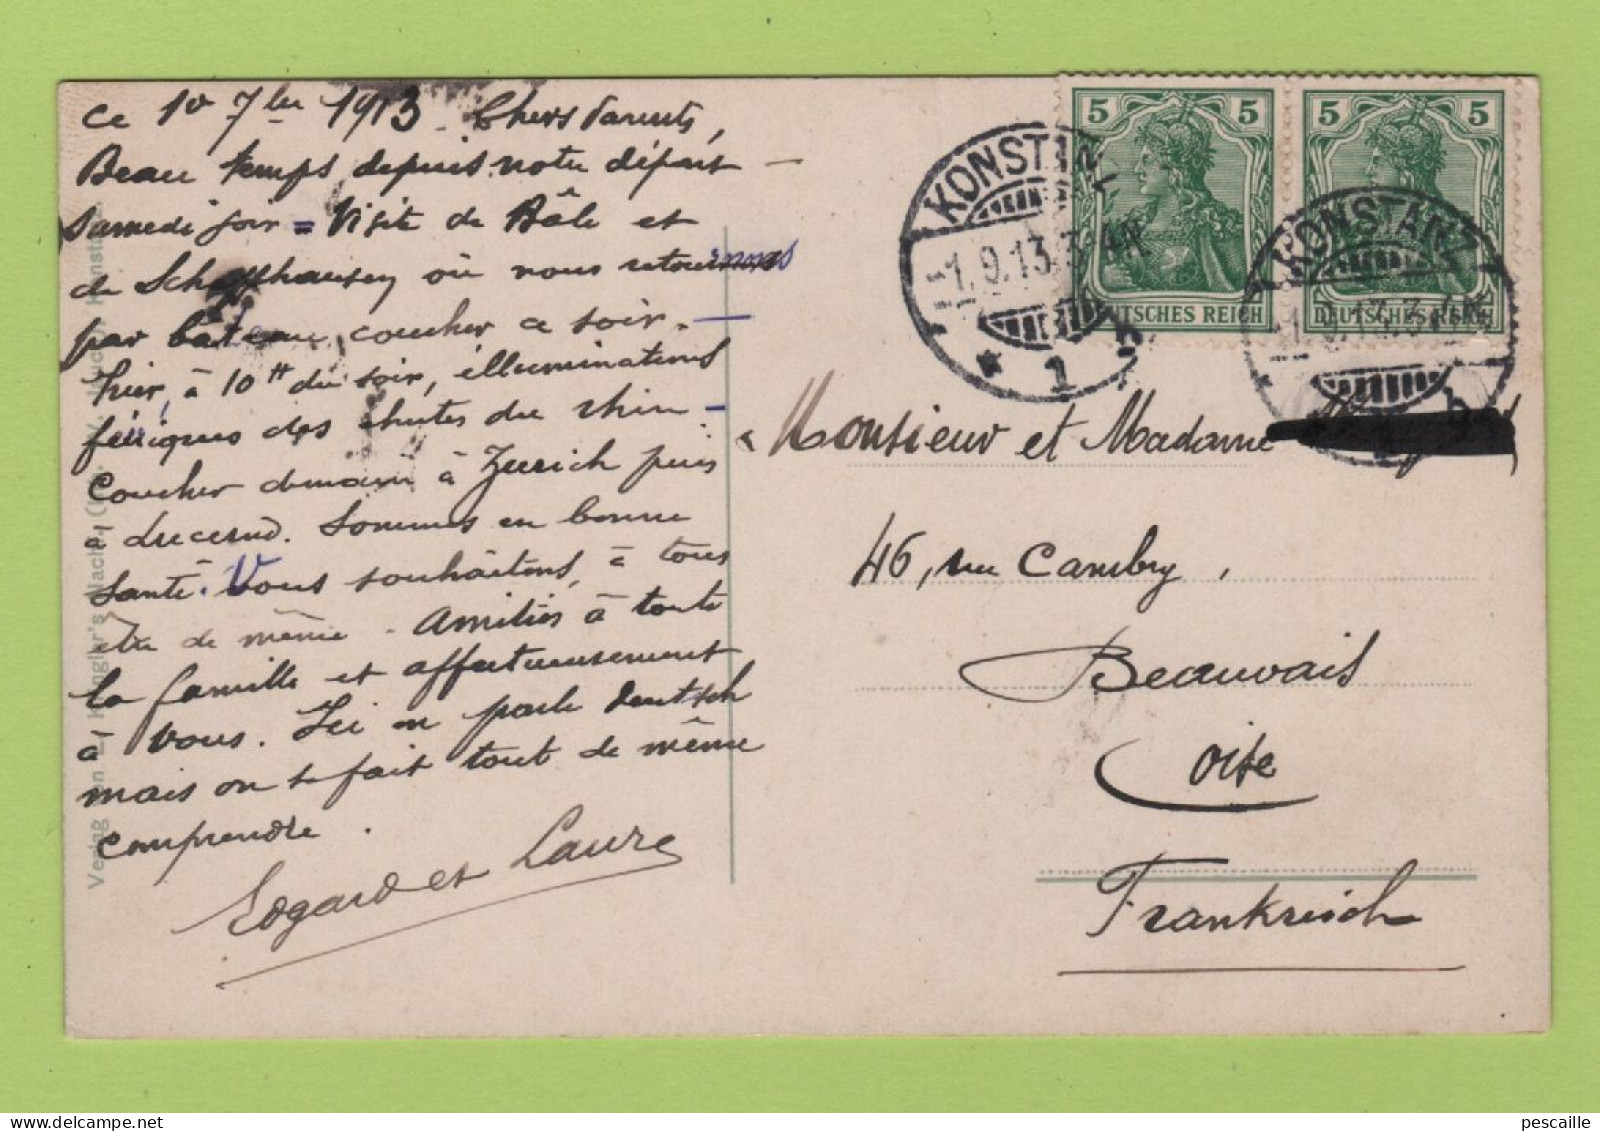 ce 1er 7bre 1913. Chers Parents,
Beau temps depuis notre départ
samedi soir = Visite de Bâle et
de Schaffhausen où nous retournons
par bateau coucher ce soir. —
Hier, à 10H du soir, illuminations
féeriques des chutes du Rhin —
Coucher demain à Zurich puis
à Lucerne. Sommes en bonne
santé. Vous souhaitons, à tous
être de même. Amitiés à toute
la famille et affectueusement
à vous. Ici on parle deutsch
mais on se fait tout de même
comprendre.
Edgard et Laure
KONSTANZ
-1.9.13.3-4N
* 1 b
5 5
DEUTSCHES REICH
5 5
DEUTSCHES REICH
KONSTANZ
Monsieur et Madame
46, rue Cambry,
Beauvais
Oise
Frankreich
Verlag von
pescaille